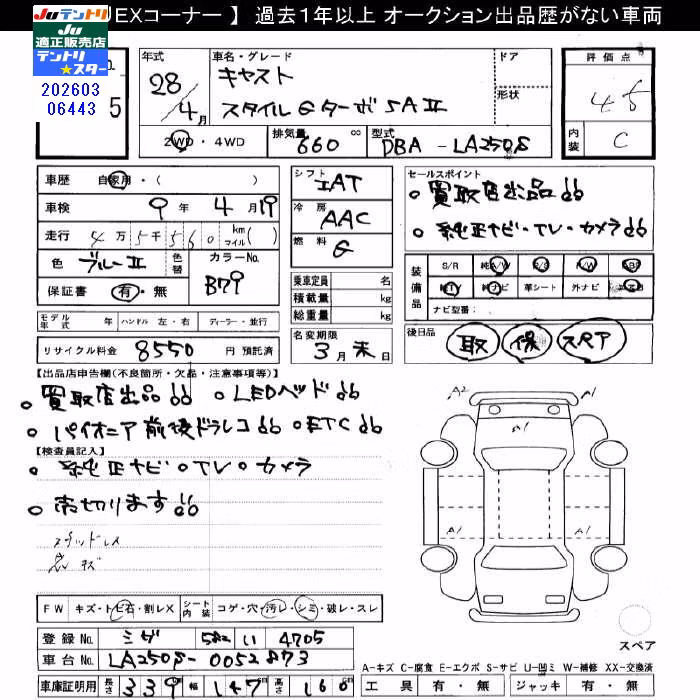 EXコーナー 】 過去1年以上 オークション出品歴がない車両
JUテントリ
JU
適正販売店
テントリ
★スター
202603
06443
5
年式 28/4月
車名・グレード
キャスト
スタイル G ターボ SA II
ドア
形状
評価点
4.5
内装 C
2WD・4WD
排気量 660 cc
型式 DBA - LA250S
車歴 自家用・( )
車検 9年 4月 19
走行 4万 5千 560 km マイル( )
色 ブルーII 色替 カラーNo. B79
保証書 有・無
シフト IAT
冷房 AAC
燃料 G
乗車定員 名
積載量 kg
総重量 kg
セールスポイント
。買取店出品!!
。純正ナビ・TV・カメラ!!
装備品
S/R 純A/W P/S P/W ABS
純TV 純ナビ 革シート 外ナビ
ナビ型番:
モデル年式 年 ハンドル 左・右 ディーラー・並行
リサイクル料金 8550 円 預託済
名変期限
3月末日
後日品 取 保 スペア
【出品店申告欄(不良箇所・欠品・注意事項等)】
。買取店出品!! 。LEDヘッド!!
。パイオニア前後ドラレコ!! 。ETC!!
【検査員記入】
。純正ナビ・TV・カメラ
。売切ります!!
スタッドレス
A2 A1
A1
A1 A1
FW キズ・トビ石・割レX シート内装 コゲ・穴・汚レ・シミ・破レ・スレ
登録No. ミヤ 582 い 4705
車台No. LA250S-0052873
車庫証明用 長さ 339 幅 147 高さ 160
スペア
A-キズ C-腐食 E-エクボ S-サビ U-凹ミ W-補修 XX-交換済
工具 有・無 ジャッキ 有・無